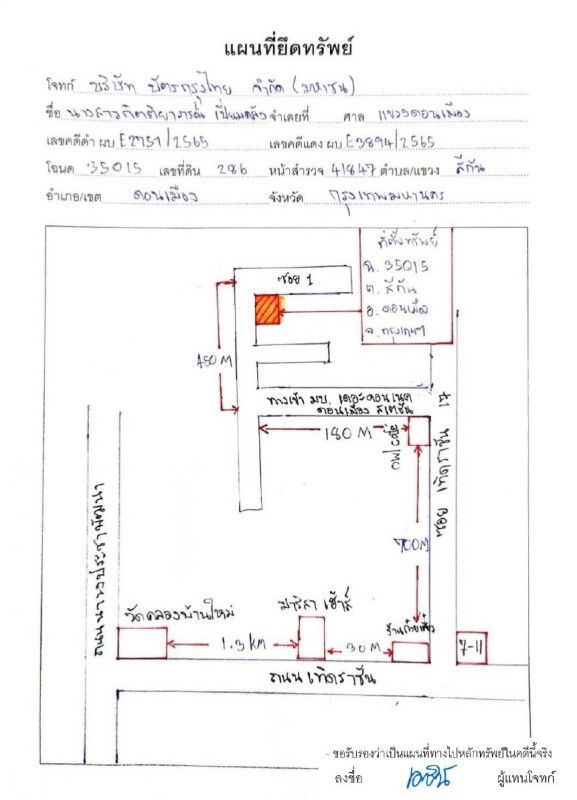 แผนที่ยึดทรัพย์
โจทก์ บริษัท บัตรกรุงไทย จำกัด (มหาชน)
ชื่อ นางสาวกิตติยาภรณ์ เปี่ยมคลัง จำเลยที่ ศาล แขวงดอนเมือง
เลขคดีดำ ผบ E2751/2565 เลขคดีแดง ผบ E3894/2565
โฉนด 35015 เลขที่ดิน 286 หน้าสำรวจ 41847 ตำบล/แขวง สีกัน
อำเภอ/เขต ดอนเมือง จังหวัด กรุงเทพมหานคร
ที่ตั้งทรัพย์
ฉ. 35015
ต. สีกัน
อ. ดอนเมือง
จ. กรุงเทพฯ
ซอย 1
450 M
ทางเข้า มบ. เดอะคอนเนค
ดอนเมือง สเตชั่น
180 M
owl cafe
ซอย เทิดราชัน 17
700M
ถนนนาวงประชาพัฒนา
วัดคลองบ้านใหม่
ปาริสา เฮ้าส์
ร้านก๋วยเตี๋ยว
1.3 KM
30 M
7-11
ถนน เทิดราชัน
- ขอรับรองว่าเป็นแผนที่ทางไปหลักทรัพย์ในคดีนี้จริง
ลงชื่อ ผู้แทนโจทก์